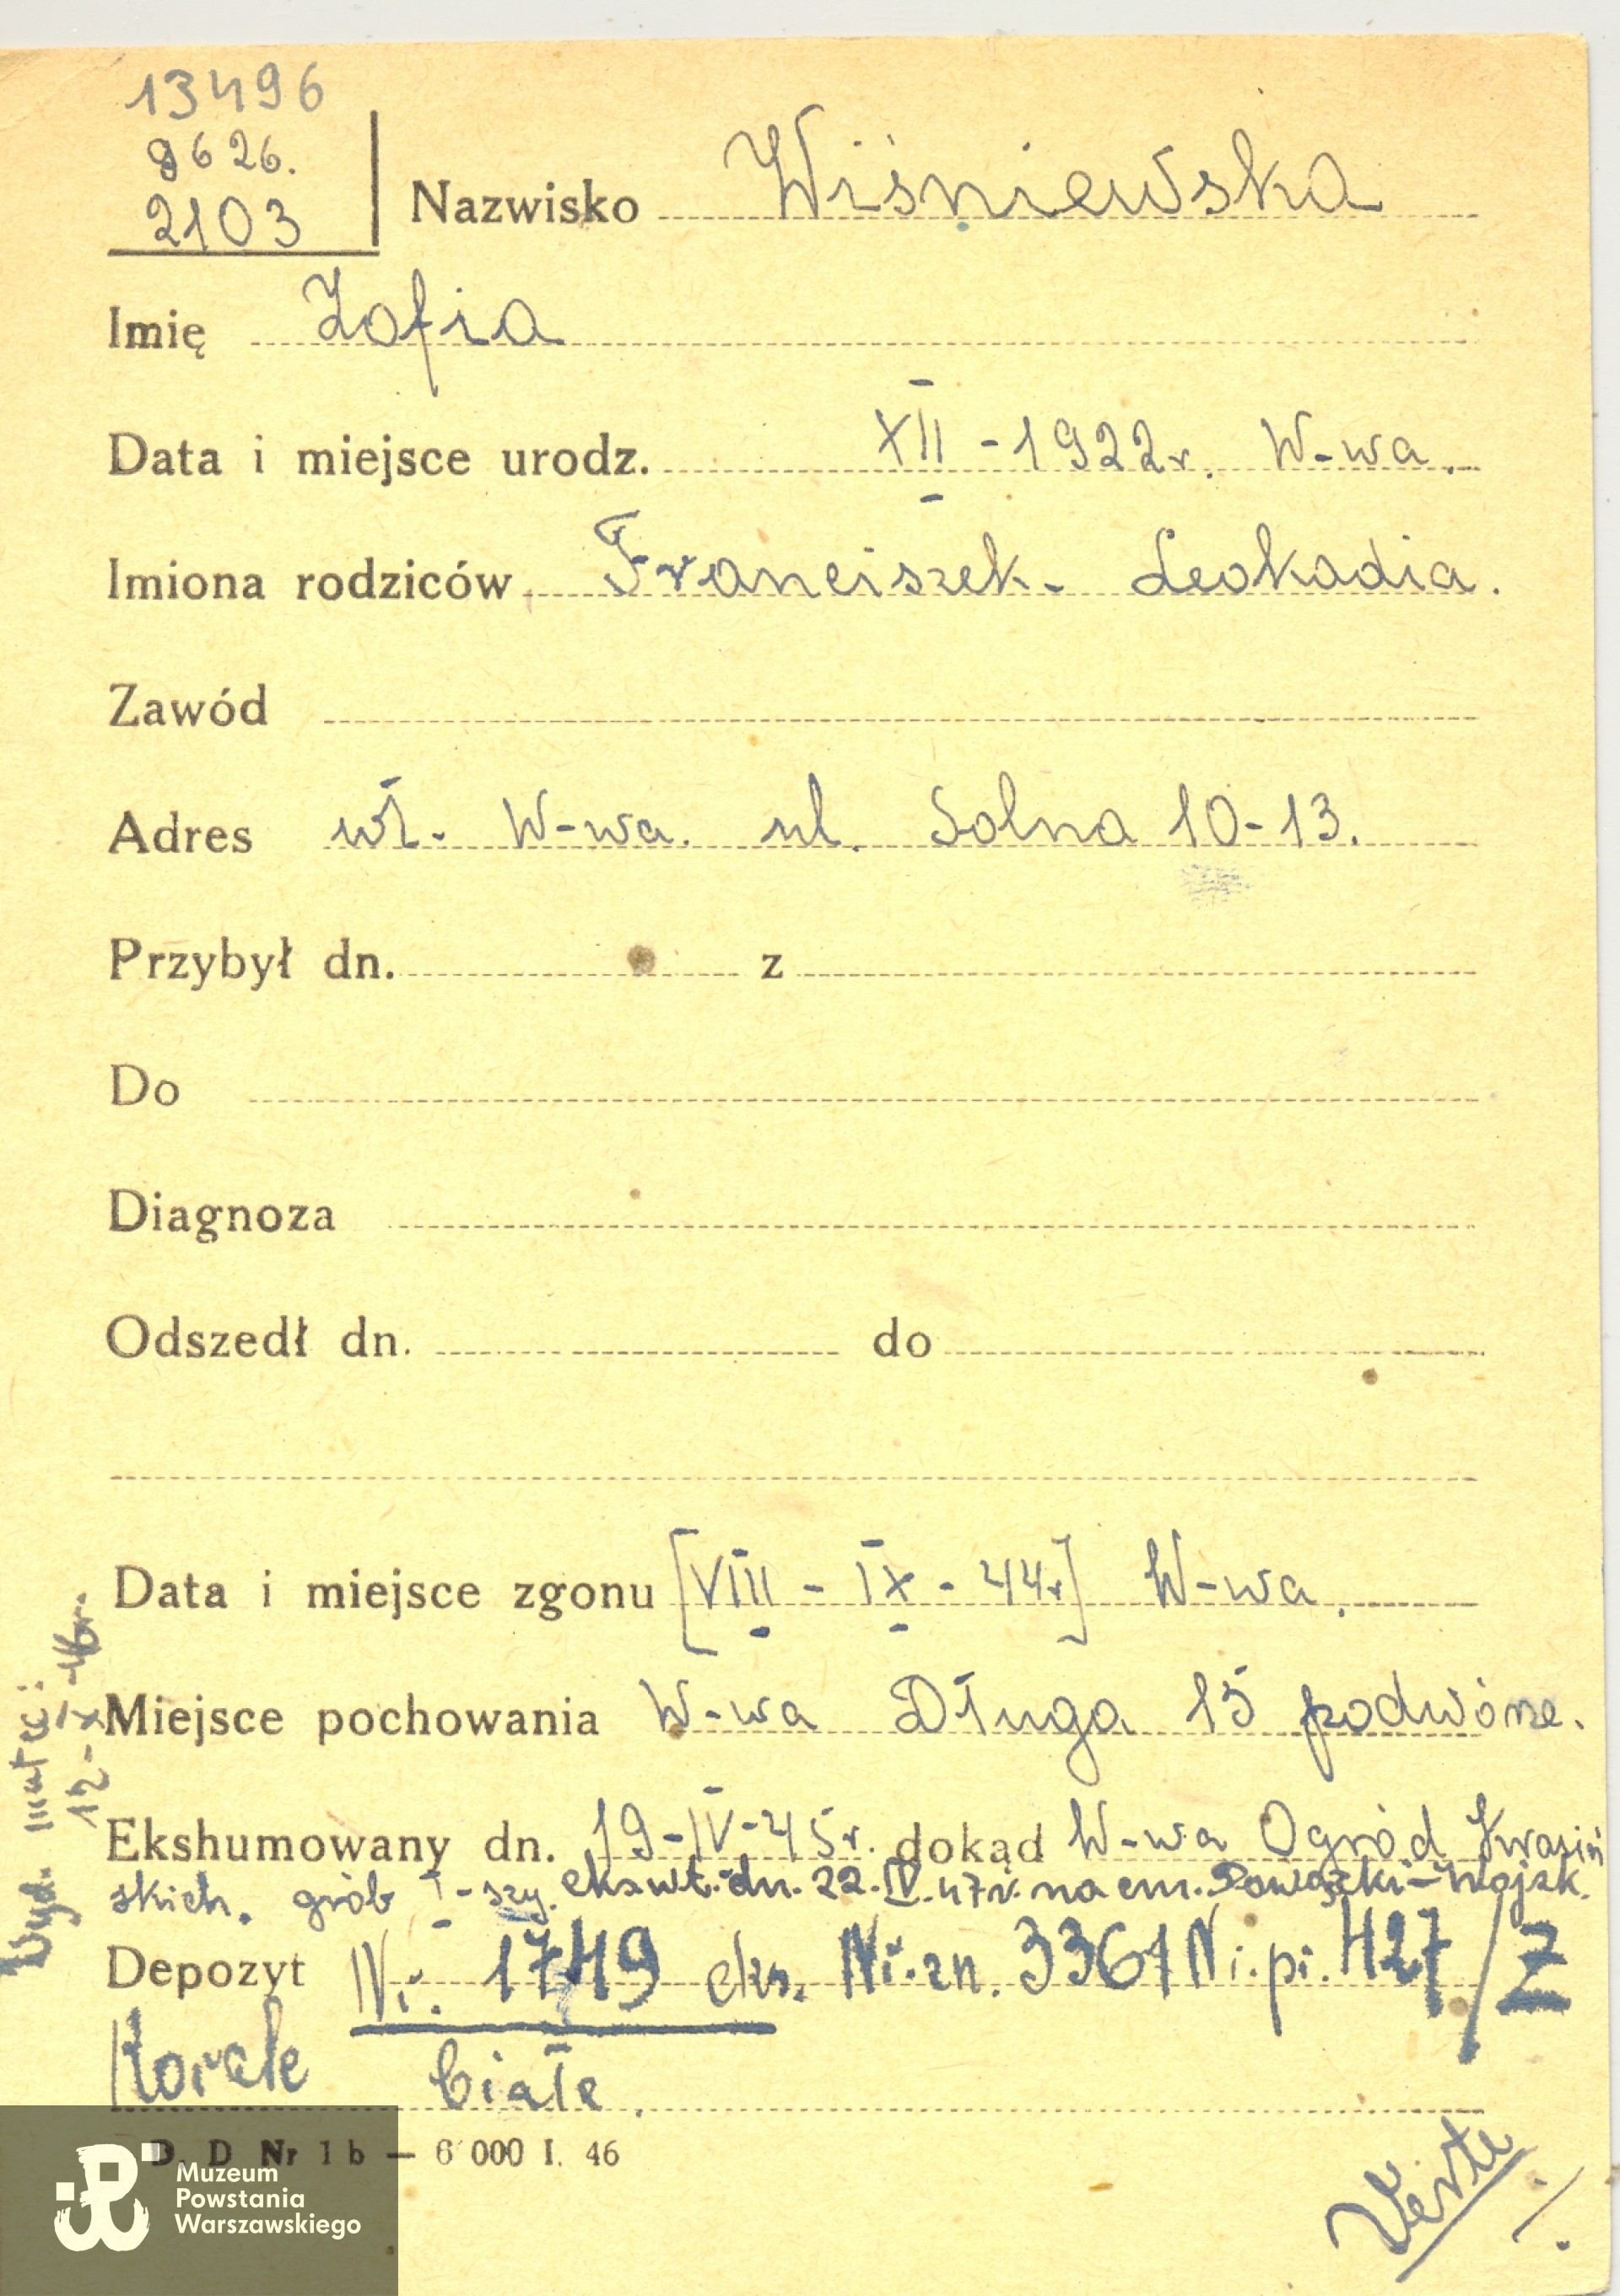 13496
9626.
2103
Nazwisko Wiśniewska
Imię Zofia
Data i miejsce urodz. XII - 1922 r. W-wa.
Imiona rodziców Franciszek - Leokadia.
Zawód
Adres wł. W-wa. ul. Solna 10-13.
Przybył dn. z
Do
Diagnoza
Odszedł dn. do
Data i miejsce zgonu [VIII - IX - 44r] W-wa.
Miejsce pochowania W-wa Długa 15 podwórze.
Ekshumowany dn. 19-IV-45r. dokąd W-wa Ogród Krasiń
skich. grób I-szy. eksht. dn. 22.IV.47r. na cm. Powązki-Wojsk.
Depozyt Nr. 1749 eks. Nr. zn. 3361 Nr. pr. 427/Z
Korale białe.
D. D Nr 1 b — 6 000 I. 46
Verte!
Wyd. matce:
12-X-46r.
Muzeum
Powstania
Warszawskiego